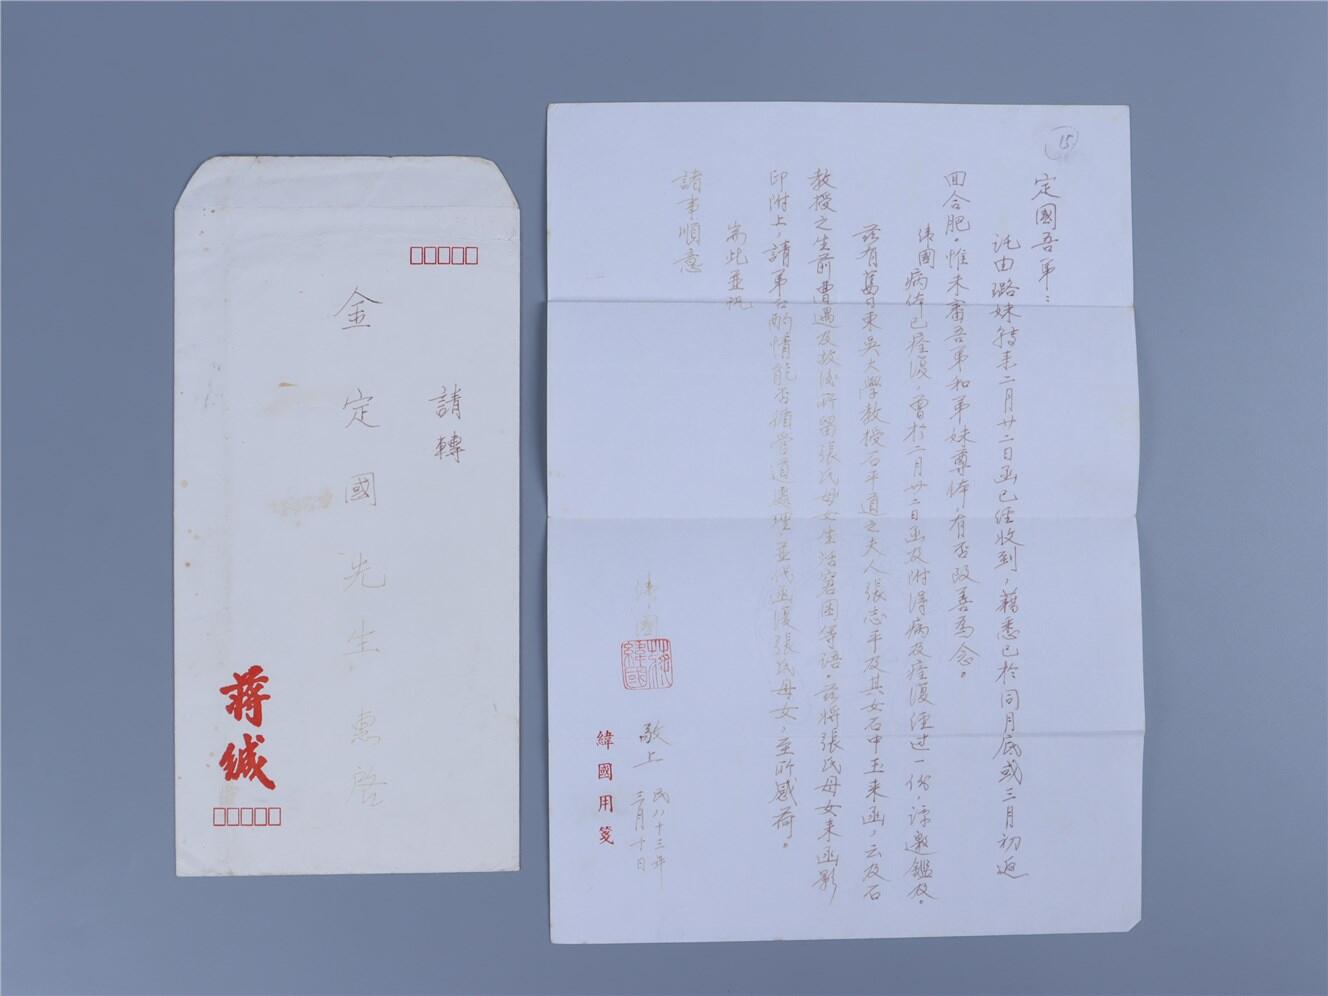 請轉
金定國先生惠啓
蔣緘
15
定國吾弟：
託由璐妹轉來二月廿二日函已經收到，藉悉已於同月底或三月初返
回合肥。惟未審吾弟和弟妹尊体，有否改善為念。
緯國病体已痊復，曾於二月廿二日函及附得病及痊復經過一份，諒邀鑑及。
茲有舊日東吳大學教授石平道之夫人張志平及其女石中玉來函，云及石
教授之生前遭遇及故後所留張氏母女生活窘困等語。茲將張氏母女來函影
印附上，請弟台酌情能否循管道處理，並代函復張氏母女，至所感荷。
耑此並祝
諸事順意
緯國
蔣緯國
敬上
民八十三年
三月十日
緯國用箋